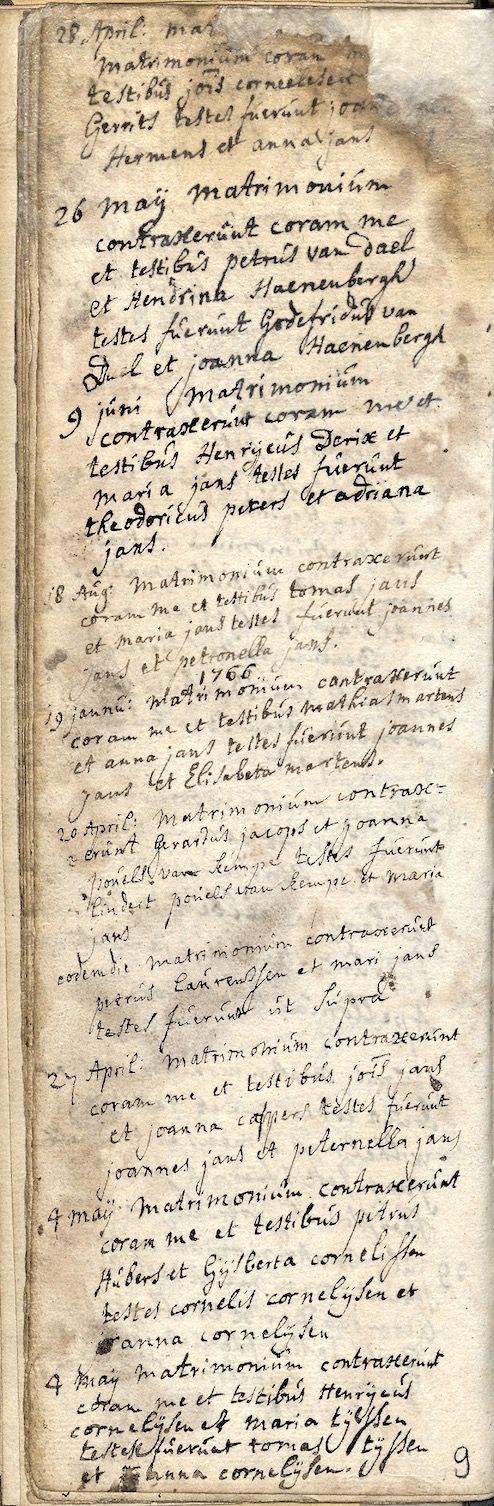 28 April: mat
Matrimonium coram m
testibus jois corneelesen
Gerrits testes fuerunt joan
Hermens et anna jans
26 maÿ matrimonium
contraxerunt coram me
et testibus petrus van dael
et Hendrina Haenenbergh
testes fuerunt Godefridus van
Dael et joanna Haenenbergh
9 juni Matrimonium
contraxerunt coram me et
testibus Henrycus Derix et
maria jans testes fuerunt
theodoricus peters et adriana
jans.
18 Aug: Matrimonium contraxerunt
coram me et testibus tomas jans
et maria jans testes fuerunt joannes
jans et petronella jans.
1766
19 jannu: matrimonium contraxerunt
coram me et testibus mathias martens
et anna jans testes fuerunt joannes
jans et Elisabeta martens.
20 April: Matrimonium contrax=
erunt Gerardus jacops et joanna
pouels van kempe testes fuerunt
lindert pouels van kempe et maria
jans
eodem die matrimonium contraxerunt
petrus laurenssen et mari jans
testes fuerunt ut supra
27 April: matrimonium contraxerunt
coram me et testibus jois jans
et joanna caspers testes fuerunt
joannes jans et peternella jans
4 maÿ matrimonium contraxerunt
coram me et testibus petrus
Hubers et Gÿsberta cornelissen
testes cornelis cornelÿsen et
joanna cornelÿsen
4 maÿ matrimonium contraxerunt
coram me et testibus Henrycus
cornelÿsen et maria tÿssen
testes fuerunt tomas tÿssen
et joanna cornelÿsen.
9